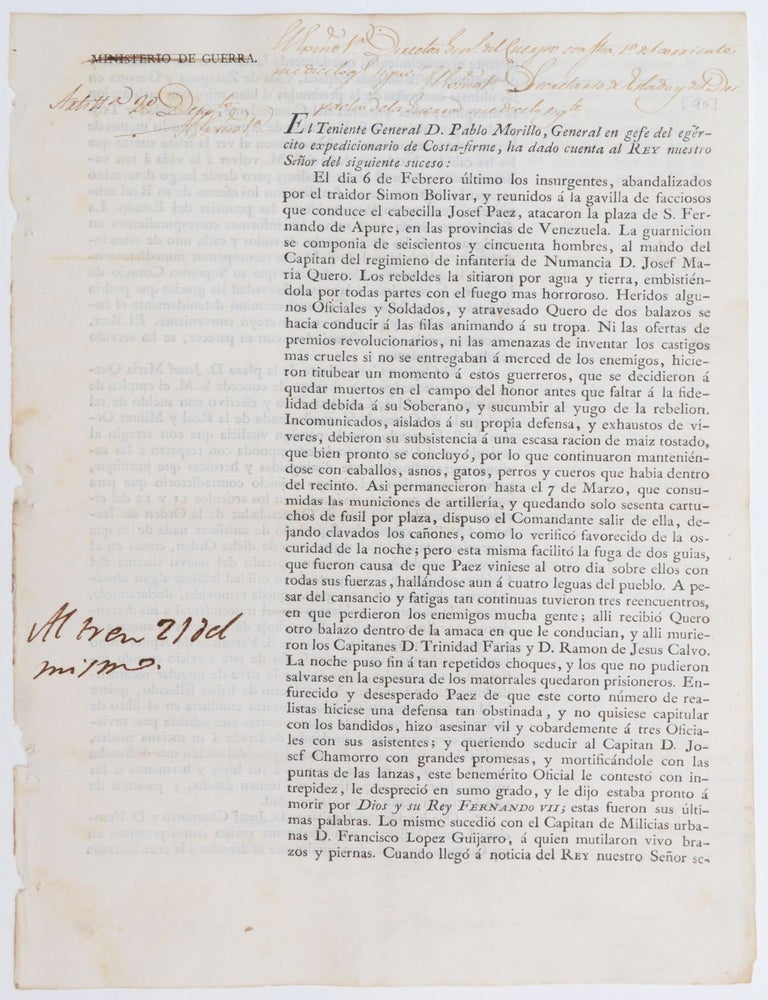 MINISTERIO DE GUERRA.
Director Genl. del Cuerpo con fha
[90]
El Teniente General D. Pablo Morillo, General en gefe del egér-
cito expedicionario de Costa-firme, ha dado cuenta al REY nuestro
Señor del siguiente suceso:
El dia 6 de Febrero último los insurgentes, abandalizados
por el traidor Simon Bolivar, y reunidos á la gavilla de facciosos
que conduce el cabecilla Josef Paez, atacaron la plaza de S. Fer-
nando de Apure, en las provincias de Venezuela. La guarnicion
se componia de seiscientos y cincuenta hombres, al mando del
Capitan del regimieno de infantería de Numancia D. Josef Ma-
ría Quero. Los rebeldes la sitiaron por agua y tierra, embistién-
dola por todas partes con el fuego mas horroroso. Heridos algu-
nos Oficiales y Soldados, y atravesado Quero de dos balazos se
hacia conducir á las filas animando á su tropa. Ni las ofertas de
premios revolucionarios, ni las amenazas de inventar los castigos
mas crueles si no se entregaban á merced de los enemigos, hicie-
ron titubear un momento á estos guerreros, que se decidieron á
quedar muertos en el campo del honor antes que faltar á la fide-
lidad debida á su Soberano, y sucumbir al yugo de la rebelion.
Incomunicados, aislados á su propia defensa, y exhaustos de ví-
veres, debieron su subsistencia á una escasa racion de maiz tostado,
que bien pronto se concluyó, por lo que continuaron mantenién-
dose con caballos, asnos, gatos, perros y cueros que habia dentro
del recinto. Asi permanecieron hasta el 7 de Marzo, que consu-
midas las municiones de artillería, y quedando solo sesenta cartu-
chos de fusil por plaza, dispuso el Comandante salir de ella, de-
jando clavados los cañones, como lo verificó favorecido de la os-
curidad de la noche; pero esta misma facilitó la fuga de dos guias,
que fueron causa de que Paez viniese al otro dia sobre ellos con
todas sus fuerzas, hallándose aun á cuatro leguas del pueblo. A pe-
sar del cansancio y fatigas tan continuas tuvieron tres reencuentros,
en que perdieron los enemigos mucha gente; alli recibió Quero
otro balazo dentro de la amaca en que le conducian, y alli murie-
ron los Capitanes D. Trinidad Farias y D. Ramon de Jesus Calvo.
La noche puso fin á tan repetidos choques, y los que no pudieron
salvarse en la espesura de los matorrales quedaron prisioneros. En-
furecido y desesperado Paez de que este corto número de rea-
listas hiciese una defensa tan obstinada, y no quisiese capitular
con los bandidos, hizo asesinar vil y cobardemente á tres Oficia-
les con sus asistentes; y queriendo seducir al Capitan D. Jo-
sef Chamorro con grandes promesas, y mortificándole con las
puntas de las lanzas, este benemérito Oficial le contestó con in-
trepidez, le despreció en sumo grado, y le dijo estaba pronto á
morir por Dios y su Rey FERNANDO VII; estas fueron sus últi-
mas palabras. Lo mismo sucedió con el Capitan de Milicias urba-
nas D. Francisco Lopez Guijarro, á quien mutilaron vivo bra-
zos y piernas. Cuando llegó á noticia del REY nuestro Señor se-
Al tren 21 del
mismo.